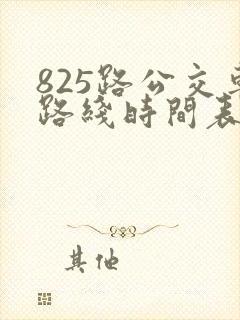 825路公交
路綫時間表
其他